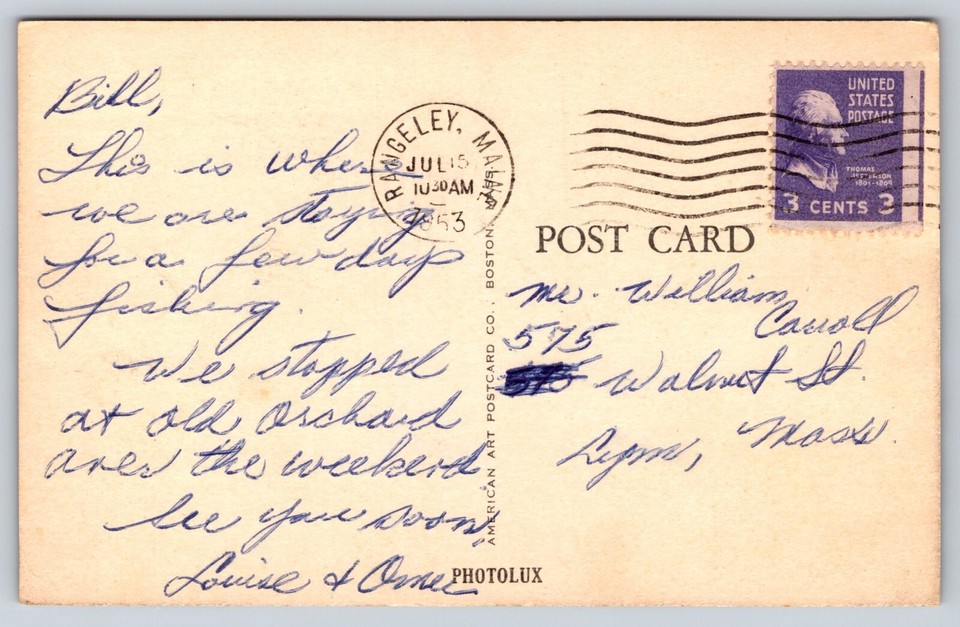 Bill,
This is where
we are staying
for a few days
fishing.
We stopped
at old Orchard
over the weekend
See you soon,
Louise & Omer
RANGELEY, MAINE
JUL 15
10 30 AM
1953
UNITED
STATES
POSTAGE
THOMAS
JEFFERSON
1801-1809
3 CENTS 3
POST CARD
Mr. William
Carroll
575
Walnut St.
Lynn, Mass.
AMERICAN ART POSTCARD CO., BOSTON, MASS.
PHOTOLUX